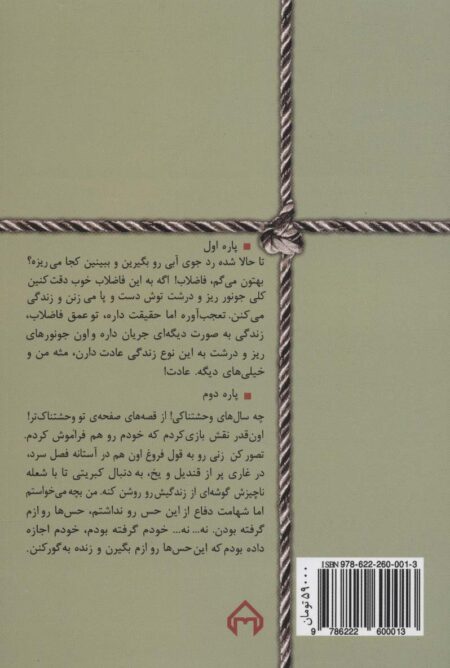 پاره اول
تا حالا شده رد جوی آبی رو بگیرین و ببینین کجا می‌ریزه؟
بهتون می‌گم، فاضلاب! اگه به این فاضلاب خوب دقت کنین
کلی جونور ریز و درشت توش دست و پا می زنن و زندگی
می‌کنن. تعجب‌آوره اما حقیقت داره، تو عمق فاضلاب،
زندگی به صورت دیگه‌ای جریان داره و اون جونورهای
ریز و درشت به این نوع زندگی عادت دارن، مثه من و
خیلی‌های دیگه. عادت!
پاره دوم
چه سال‌های وحشتناکی! از قصه‌های صفحه‌ی تو وحشتناک‌تر!
اون‌قدر نقش بازی کردم که خودم رو هم فراموش کردم.
تصور کن زنی رو به قول فروغ اون هم در آستانه فصل سرد،
در غاری پر از قندیل و یخ، به دنبال کبریتی تا با شعله
ناچیزش گوشه‌ای از زندگیش رو روشن کنه. من بچه می‌خواستم
اما شهامت دفاع از این حس رو نداشتم، حس‌ها رو ازم
گرفته بودن. نه... نه... خودم گرفته بودم، خودم اجازه
داده بودم که این حس‌ها رو ازم بگیرن و زنده به‌گور کنن.
ISBN 978-622-260-001-3
9 786222 600013
۵۹۰۰۰ تومان